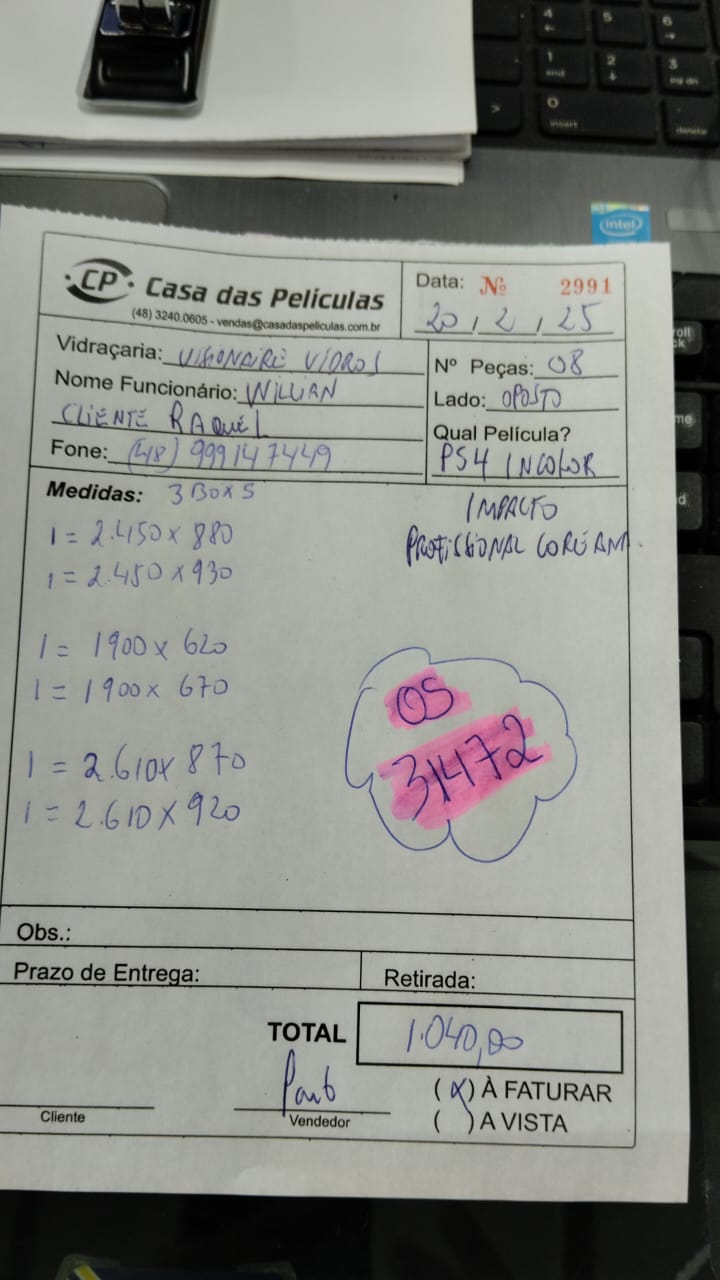 CP Casa das Películas
(48) 3240.0605 - vendas@casadaspeliculas.com.br
Data: Nº 2991
20 / 2 / 25
Vidraçaria: VISIONAIRE VIDROS
Nome Funcionário: WILLIAN
CLIENTE RAQUEL
Fone: (48) 999147449
Nº Peças: 08
Lado: OPOSTO
Qual Película?
PS4 INCOLOR
Medidas: 3 BOXS
IMPACTO
PROFISSIONAL COREANA.
1 = 2.450 x 880
1 = 2.450 x 930
1 = 1900 x 620
1 = 1900 x 670
1 = 2.610 x 870
1 = 2.610 x 920
OS
31472
Obs.:
Prazo de Entrega:
Retirada:
TOTAL 1.040,00
(X) À FATURAR
( ) A VISTA
Cliente
Vendedor
intel
4
5
6
1
end
2
3
pg dn
0
insert
delete
>